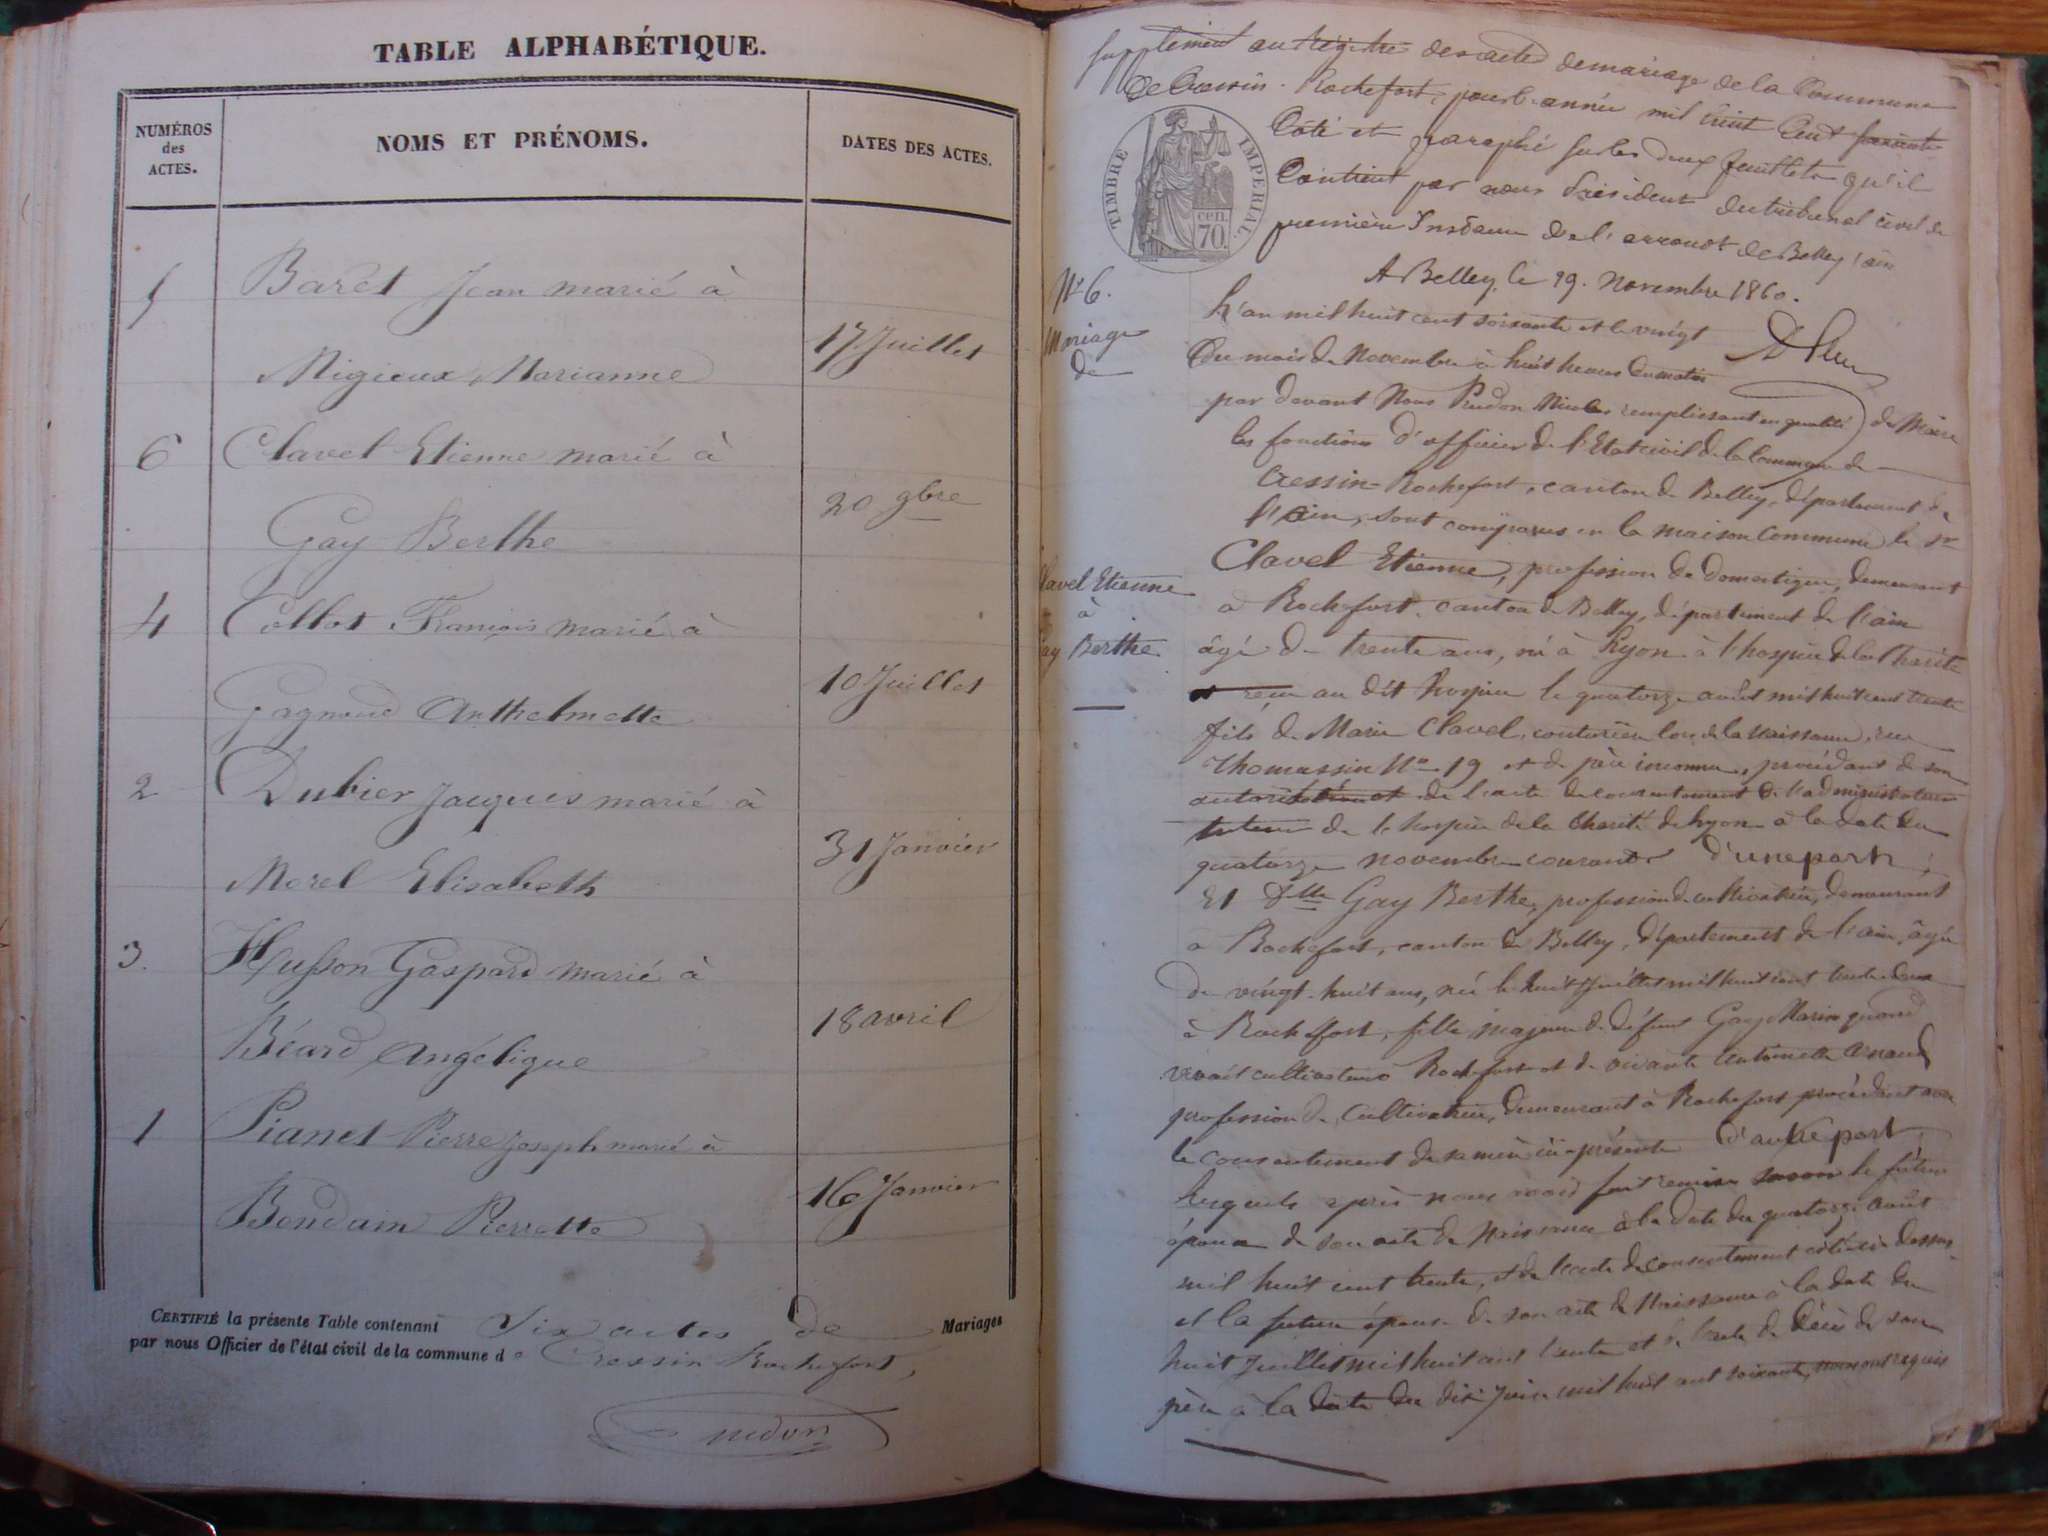 TABLE ALPHABÉTIQUE.
NUMÉROS des ACTES.
NOMS ET PRÉNOMS.
DATES DES ACTES.
5 Baret Jean marié à
Migieux Marianne 17 Juillet
6 Clavel Etienne marié à
Gay Berthe 20 9bre
4 Collot François marié à
Gagnoud Anthelmette 10 Juillet
2 Dubier Jacques marié à
Morel Elisabeth 31 Janvier
3. Husson Gaspard marié à
Béard Angélique 18 avril
1 Pianet Pierre Joseph marié à
Bondain Pierrette 16 Janvier
CERTIFIÉ la présente Table contenant Six actes de Mariages
par nous Officier de l'état civil de la commune de Cressin Rochefort,
Prudon
Supplément au Régistre des actes de mariage de la Commune
de Cressin-Rochefort, pour l'année mil huit Cent soixante
Côté et paraphé sur les deux feuillets qu'il
Contient par nous Président du tribunal civil de
première Instance de l'arrondt de Belley (ain
TIMBRE IMPÉRIAL
cen. 70.
A Belley, le 19. Novembre 1860.
N° 6.
Mariage
de
Clavel Etienne
à
Gay Berthe.
L'an mil huit cent soixante et le vingt
du mois de Novembre à huit heures du matin
par devant Nous Prudon Nicolas remplissant en qualité de Maire
les fonctions d'officier de l'Etat civil de la Commune de
Cressin-Rochefort, canton de Belley, département de
l'ain, sont comparus en la maison Commune le sr
Clavel Etienne, profession de domestique, demeurant
à Rochefort, canton de Belley, département de l'ain
âgé de trente ans, né à Lyon à l'hospice de la Charité
reçu au dit hospice le quatorze août mil huit cent trente
fils de Marie Clavel, couturière lors de la naissance, rue
Thomassin N° 19 et de père inconnu, procédant de son
de l'acte de consentement de l'administration
de l'hospice de la Charité de Lyon à la date du
quatorze novembre courant d'une part;
Et Dlle Gay Berthe, profession de cultivatrice, demeurant
à Rochefort, canton de Belley, département de l'ain, âgée
de vingt-huit ans, née le huit Juillet mil huit cent trente deux
à Rochefort, fille majeure de défunt Gay Marin quand
vivait cultivateur à Rochefort et de vivante Antoinette
profession de Cultivatrice, demeurant à Rochefort procédant avec
le consentement de sa mère ici présente d'autre part,
Lesquels après nous avoir fait remise savoir le futur
époux de son acte de Naissance à la date du quatorze août
mil huit cent trente, et de l'acte de consentement cité ci-dessus
et la future épouse de son acte de Naissance à la date du
huit Juillet mil huit cent trente et de l'acte de décès de son
père à la date du dix Juin mil huit cent soixante, nous ont requis